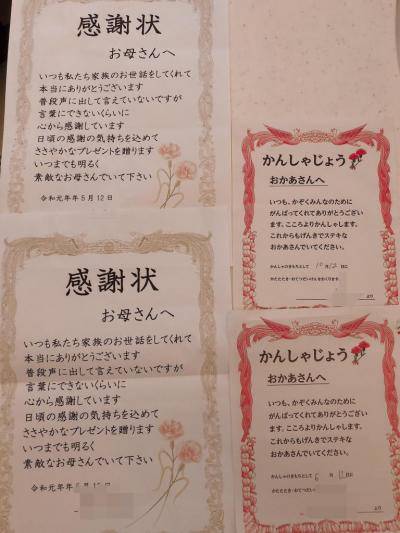 感謝状
お母さんへ
いつも私たち家族のお世話をしてくれて
本当にありがとうございます
普段声に出して言えていないですが
言葉にできないくらいに
心から感謝しています
日頃の感謝の気持ちを込めて
ささやかなプレゼントを贈ります
いつまでも明るく
素敵なお母さんでいて下さい
令和元年年5月12日
かんしゃじょう
おかあさんへ
いつも、かぞくみんなのために
がんばってくれてありがとうござい
ます。こころよりかんしゃします。
これからもげんきでステキな
おかあさんでいてください。
かんしゃのきもちとして 10月12日に
かたたたき・おてつだいけんをおくります。
より
感謝状
お母さんへ
いつも私たち家族のお世話をしてくれて
本当にありがとうございます
普段声に出して言えていないですが
言葉にできないくらいに
心から感謝しています
日頃の感謝の気持ちを込めて
ささやかなプレゼントを贈ります
いつまでも明るく
素敵なお母さんでいて下さい
令和元年年5月12日
かんしゃじょう
おかあさんへ
いつも、かぞくみんなのために
がんばってくれてありがとうござい
ます。こころよりかんしゃします。
これからもげんきでステキな
おかあさんでいてください。
かんしゃのきもちとして 6月 日に
かたたたき・おてつだい
より